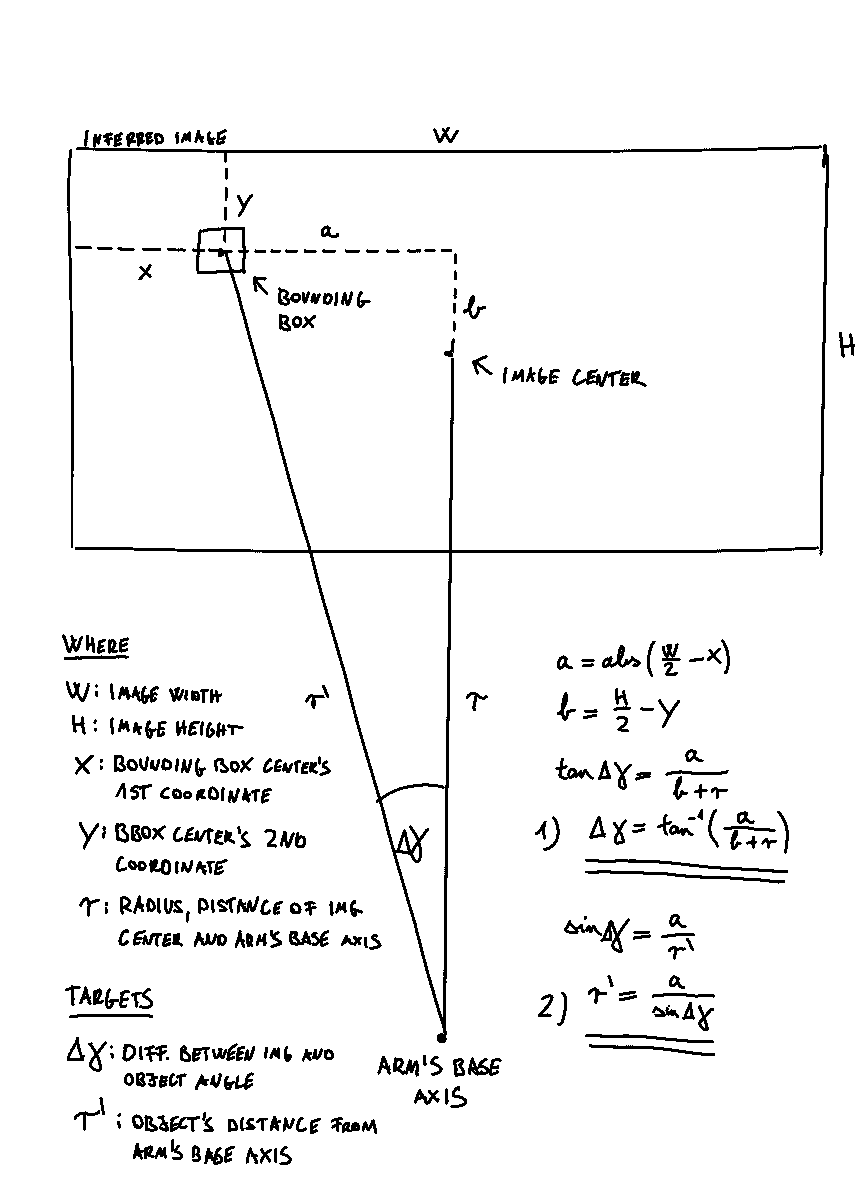 INFERRED IMAGE
W
y
a
x
BOUNDING
BOX
b
H
IMAGE CENTER
WHERE
W: IMAGE WIDTH
H: IMAGE HEIGHT
X: BOUNDING BOX CENTER'S
1ST COORDINATE
Y: BBOX CENTER'S 2ND
COORDINATE
r: RADIUS, DISTANCE OF IMG
CENTER AND ARM'S BASE AXIS
TARGETS
Δγ: DIFF. BETWEEN IMG AND
OBJECT ANGLE
r': OBJECT'S DISTANCE FROM
ARM'S BASE AXIS
r'
r
Δγ
ARM'S BASE
AXIS
a = abs(W/2 - X)
b = H/2 - Y
tan Δγ = a/(b+r)
1) Δγ = tan⁻¹(a/(b+r))
sin Δγ = a/r'
2) r' = a/(sin Δγ)